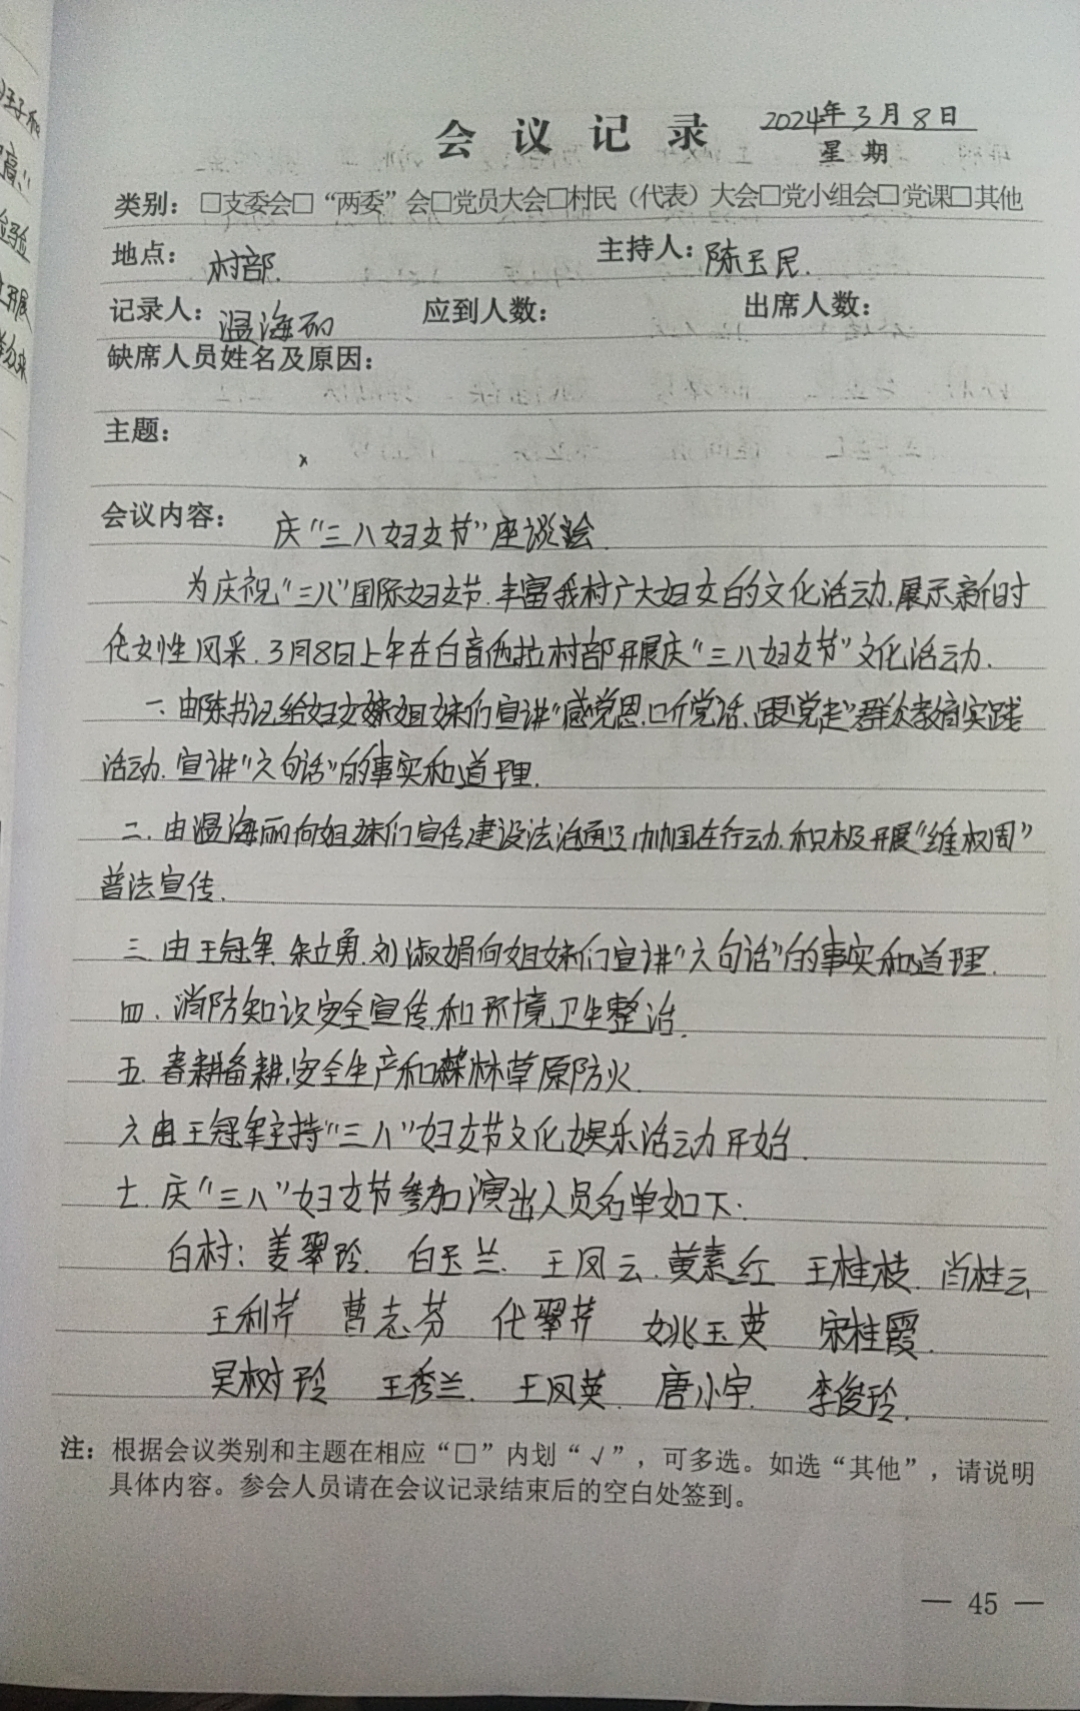 会议记录 2024年3月8日
星期
类别：□支委会□“两委”会□党员大会□村民（代表）大会□党小组会□党课□其他
地点：村部. 主持人：陈玉民.
记录人：温海丽 应到人数： 出席人数：
缺席人员姓名及原因：
主题：
会议内容： 庆“三八妇女节”座谈会.
为庆祝“三八”国际妇女节.丰富我村广大妇女的文化活动,展示新时
代女性风采.3月8日上午在白音他拉村部开展庆“三八妇女节”文化活动.
一.由陈书记给妇女姐妹们宣讲“感党恩.听党话.跟党走”群众教育实践
活动.宣讲“六句话”的事实和道理.
二.由温海丽向姐妹们宣传建设法治通辽巾帼在行动.积极开展“维权周”
普法宣传.
三.由王冠军.朱立勇.刘淑娟向姐妹们宣讲“六句话”的事实和道理.
四.消防知识安全宣传.和环境卫生整治.
五.春耕备耕.安全生产和森林草原防火.
六.由王冠军主持“三八”妇女节文化娱乐活动开始.
七.庆“三八”妇女节参加演出人员名单如下:
白村: 姜翠玲. 白玉兰. 王凤云. 黄素红 王桂枝. 肖桂云
王利芹 曹志芬 代翠芹 姚玉英 宋桂霞.
吴树玲 王秀兰. 王凤英. 唐小宇. 李俊玲.
注：根据会议类别和主题在相应“□”内划“√”，可多选。如选“其他”，请说明
具体内容。参会人员请在会议记录结束后的空白处签到。
— 45 —